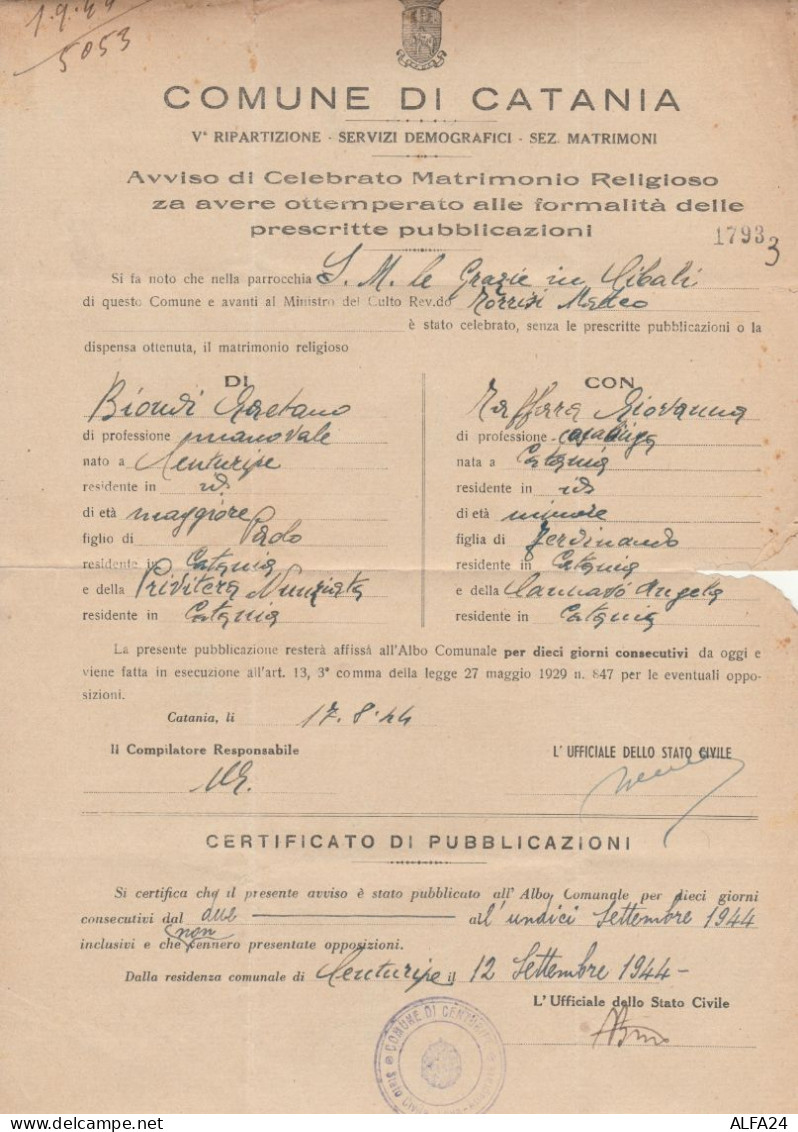 1.9.44
5053
COMUNE DI CATANIA
Vª RIPARTIZIONE - SERVIZI DEMOGRAFICI - SEZ. MATRIMONI
Avviso di Celebrato Matrimonio Religioso
za avere ottemperato alle formalità delle
prescritte pubblicazioni
17933
Si fa noto che nella parrocchia S. M. le Grazie in Cibali
di questo Comune e avanti al Ministro del Culto Rev.do Torrisi Matteo
è stato celebrato, senza le prescritte pubblicazioni o la
dispensa ottenuta, il matrimonio religioso
DI
Biondi Gaetano
di professione manovale
nato a Centuripe
residente in id
di età maggiore
figlio di Paolo
residente in Catania
e della Privitera Nunziata
residente in Catania
CON
Raffara Giovanna
di professione casalinga
nata a Catania
residente in id
di età minore
figlia di Ferdinando
residente in Catania
e della Cannavò Angela
residente in Catania
La presente pubblicazione resterà affissa all'Albo Comunale per dieci giorni consecutivi da oggi e
viene fatta in esecuzione all'art. 13, 3º comma della legge 27 maggio 1929 n. 847 per le eventuali oppo-
sizioni.
Catania, li 17.8.44
Il Compilatore Responsabile
L'UFFICIALE DELLO STATO CIVILE
CERTIFICATO DI PUBBLICAZIONI
Si certifica che il presente avviso è stato pubblicato all'Albo Comunale per dieci giorni
consecutivi dal due all'undici Settembre 1944
inclusivi e che non vennero presentate opposizioni.
Dalla residenza comunale di Centuripe il 12 Settembre 1944 -
L'Ufficiale dello Stato Civile
COMUNE DI CENTURIPE
STATO CIVILE
ALFA24